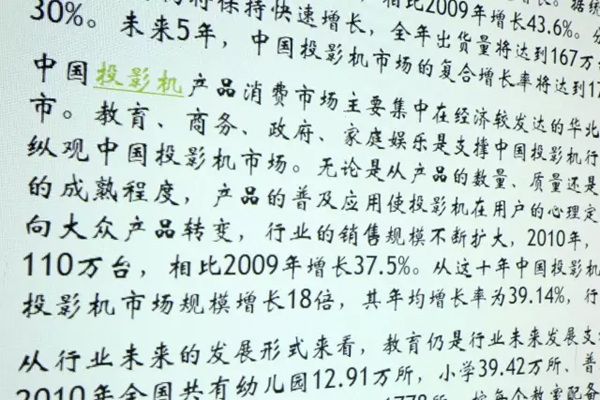 将保持快速增长，相比2009年增长43.6%。
30%。未来5年，中国投影机市场的复合增长率将达到17
全年出货量将达到167万
中国投影机产品消费市场主要集中在经济较发达的华北
市。教育、商务、政府、家庭娱乐是支撑中国投影机行
纵观中国投影机市场。无论是从产品的数量、质量还是
的成熟程度，产品的普及应用使投影机在用户的心理定
向大众产品转变，行业的销售规模不断扩大，2010年，
110万台，相比2009年增长37.5%。从这十年中国投影机
投影机市场规模增长18倍，其年均增长率为39.14%，行
从行业未来的发展形式来看，教育仍是行业未来发展支
2010年全国共有幼儿园12.91万所，小学39.42万所、普
按每个教室配备